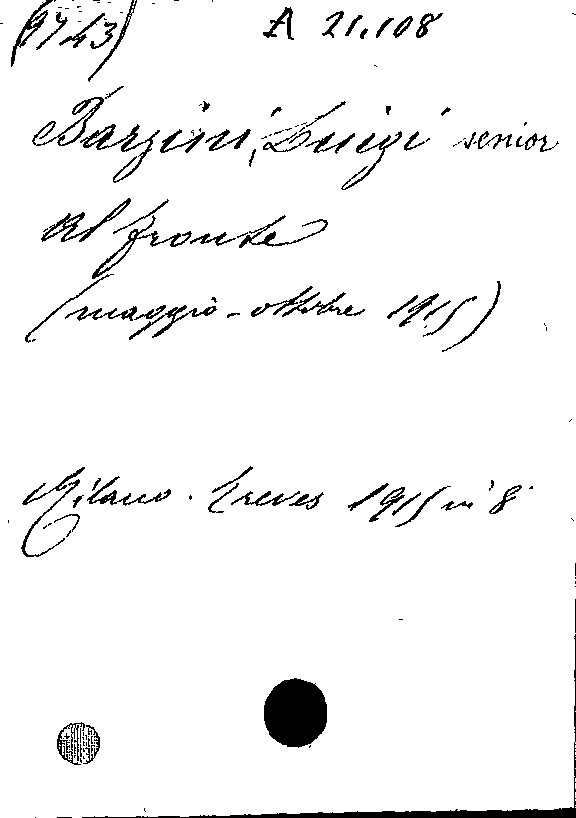 (9743) A 21.108
Barzini, Luigi senior
Al fronte
(maggio - ottobre 1915)
Milano. Treves 1915 in 8°